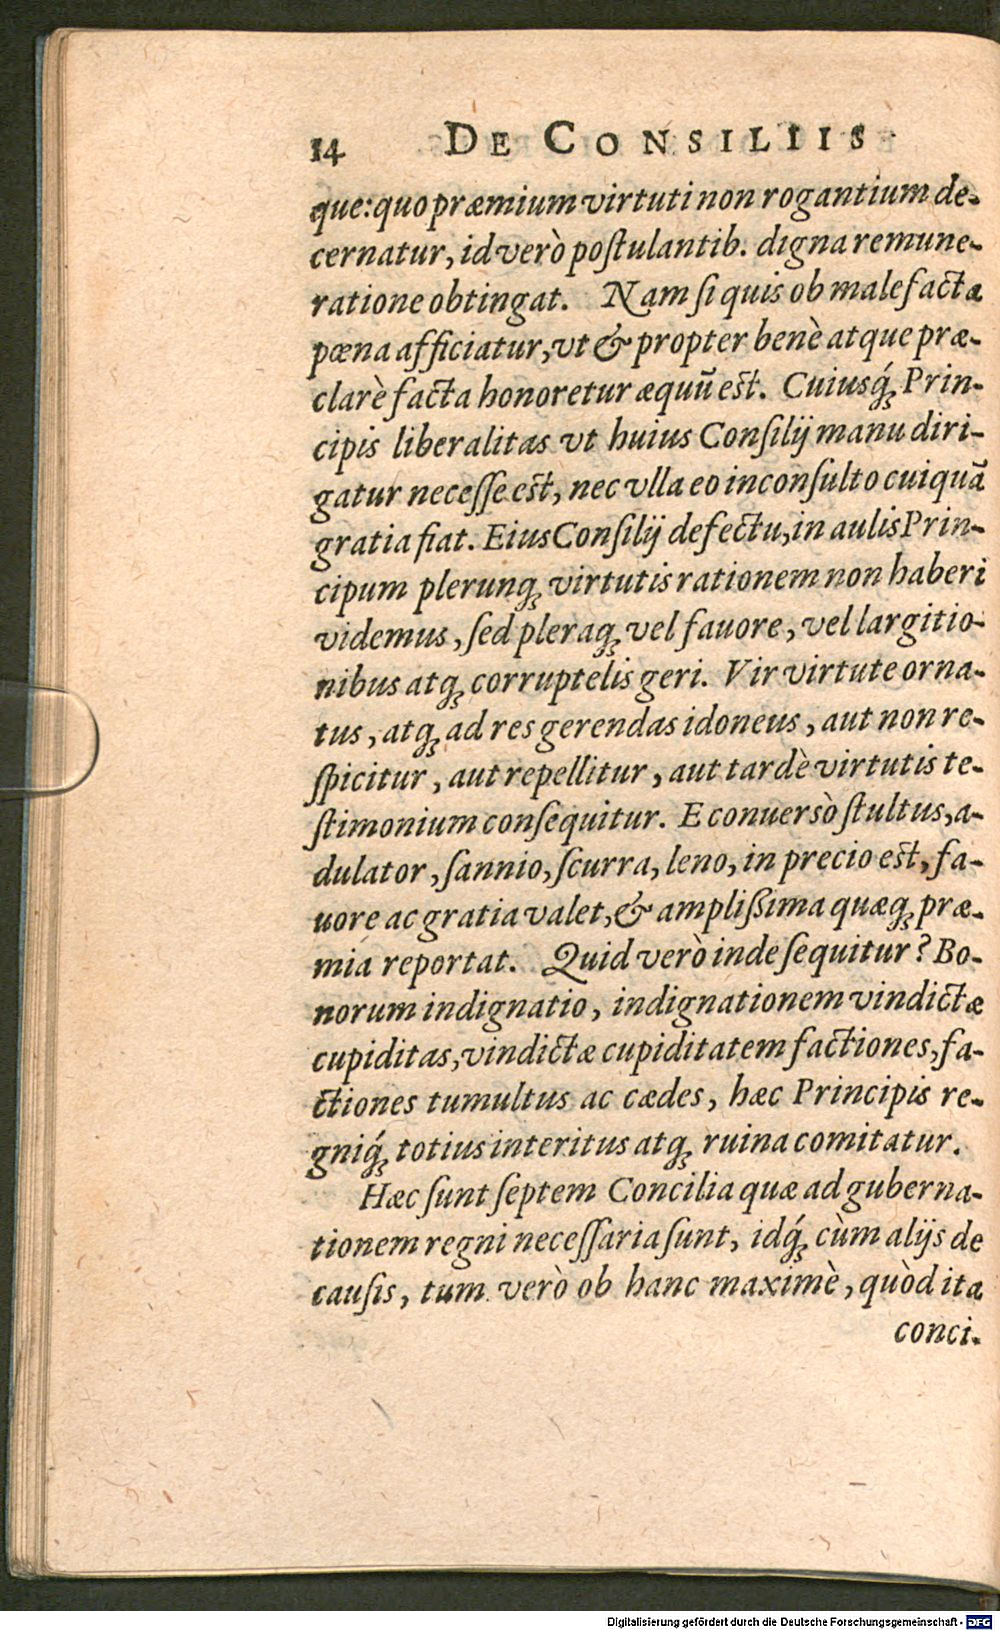 14 DE CONSILIIS
que: quo præmium virtuti non rogantium de-
cernatur, id verò poſtulantib. digna remune-
ratione obtingat. Nam ſi quis ob malefacta
pœna afficiatur, vt & propter benè atque præ-
clarè facta honoretur æquū est. Cuiusq́; Prin-
cipis liberalitas vt huius Conſilij manu diri-
gatur neceſſe est, nec vlla eo inconſulto cuiquā
gratia fiat. Eius Conſilij defectu, in aulis Prin-
cipum plerunq; virtutis rationem non haberi
videmus, ſed pleraq; vel fauore, vel largitio-
nibus atq; corruptelis geri. Vir virtute orna-
tus, atq; ad res gerendas idoneus, aut non re-
ſpicitur, aut repellitur, aut tardè virtutis te-
ſtimonium conſequitur. E conuersò ſtultus, a-
dulator, ſannio, ſcurra, leno, in precio est, fa-
uore ac gratia valet, & ampliſsima quæq; præ-
mia reportat. Quid verò inde ſequitur? Bo-
norum indignatio, indignationem vindictæ
cupiditas, vindictæ cupiditatem factiones, fa-
ctiones tumultus ac cædes, hæc Principis re-
gniq́; totius interitus atq; ruina comitatur.
Hæc ſunt ſeptem Concilia quæ ad guberna-
tionem regni neceſſaria ſunt, idq́; cùm alijs de
cauſis, tum verò ob hanc maximè, quòd ita
conci-
Digitalisierung gefördert durch die Deutsche Forschungsgemeinschaft - DFG